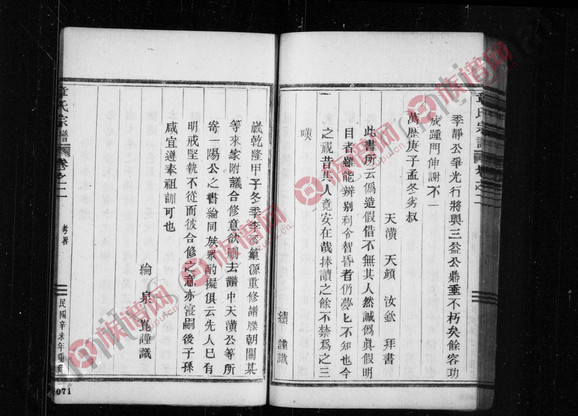 季靜公爭光行將與三公公鼎垂不朽矣餘容功
成踵門伸謝不一
萬歷庚子孟冬劣叔
天潢 天鎖 汝欽 拜書
此書所云偽造假借不無其人然誠偽真假明
目者雖能辨别利令智昏者仍夢匕不知也今
之視昔其人竟安在哉捧讀之餘不禁爲之三
嘆
績謹識
歲乾隆甲子冬季李源重修譜牒朝關其
等來索附議合修意欲去譜中天潢公等所
寄一陽公之書綸同族衆的拠俱云先人已有
明戒堅執不從而彼合修之意亦寢嗣後子孫
咸宜遵奉祖訓可也
綸 泉 崑謹識
章氏宗譜
卷之二
考畧
民國辛未年
071
族谱网